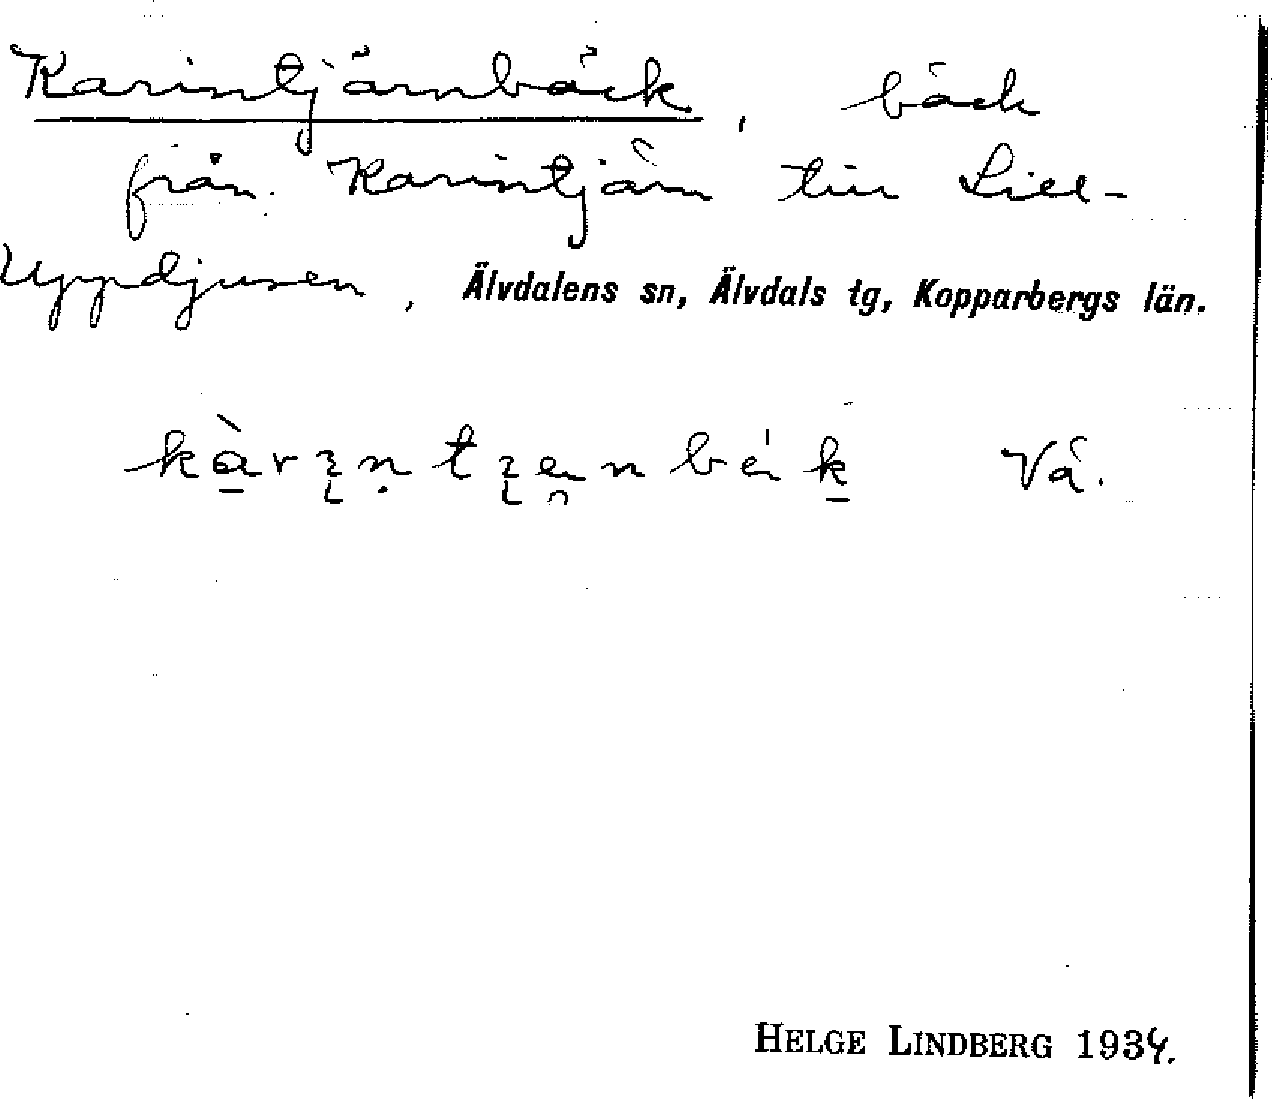 Karintjärnbäck, bäck
från Karintjärn till Lill-
Uppdjusen, Älvdalens sn, Älvdals tg, Kopparbergs län.
Vå.
HELGE LINDBERG 1934.